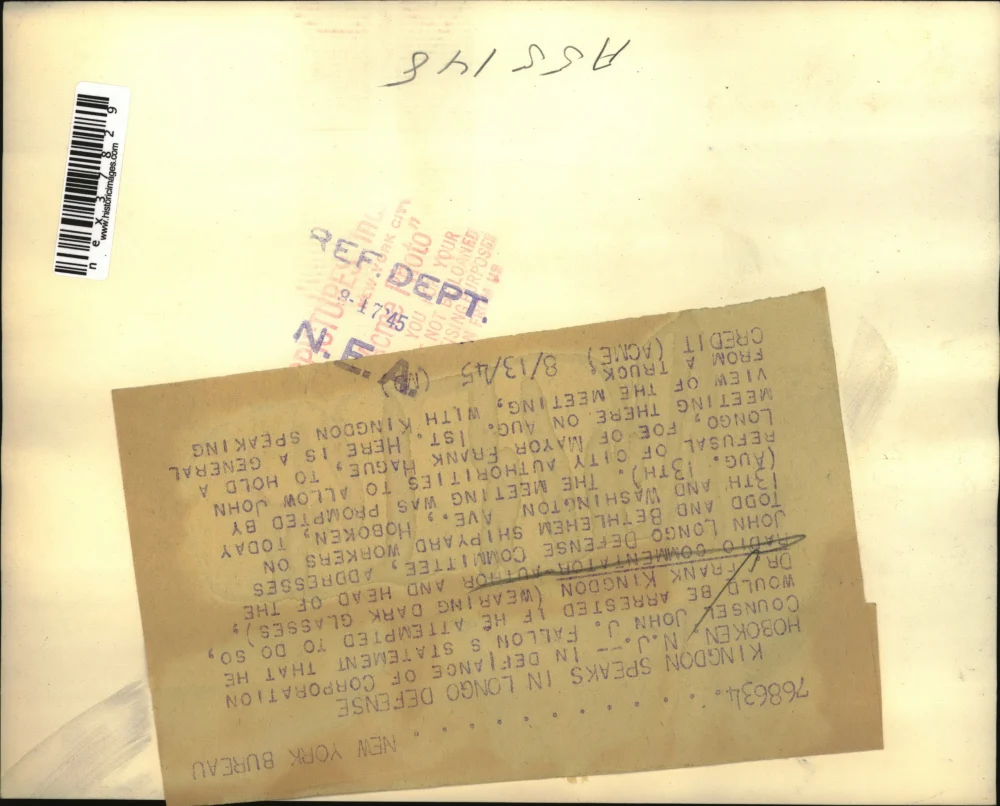 ASS148
nex37829
www.historicimages.com
REF. DEPT.
8-17'45
N.E.A.
PICTURES, INC.
NEW YORK CITY
"Acme Photo"
NEW YORK BUREAU
768634
KINGDON SPEAKS IN LONGO DEFENSE
HOBOKEN, N.J.-- IN DEFIANCE OF CORPORATION
COUNSEL JOHN J. FALLON S STATEMENT THAT HE
WOULD BE ARRESTED IF HE ATTEMPTED TO DO SO,
DR. FRANK KINGDON (WEARING DARK GLASSES),
RADIO COMMENTATOR AUTHOR AND HEAD OF THE
JOHN LONGO DEFENSE COMMITTEE, ADDRESSES
TODD AND BETHLEHEM SHIPYARD WORKERS ON
13TH AND WASHINGTON AVE., HOBOKEN, TODAY
(AUG. 13TH). THE MEETING WAS PROMPTED BY
REFUSAL OF CITY AUTHORITIES TO ALLOW JOHN
LONGO, FOE OF MAYOR FRANK HAGUE, TO HOLD A
MEETING THERE ON AUG. 1ST. HERE IS A GENERAL
VIEW OF THE MEETING, WITH KINGDON SPEAKING
FROM A TRUCK.
CREDIT (ACME) 8/13/45